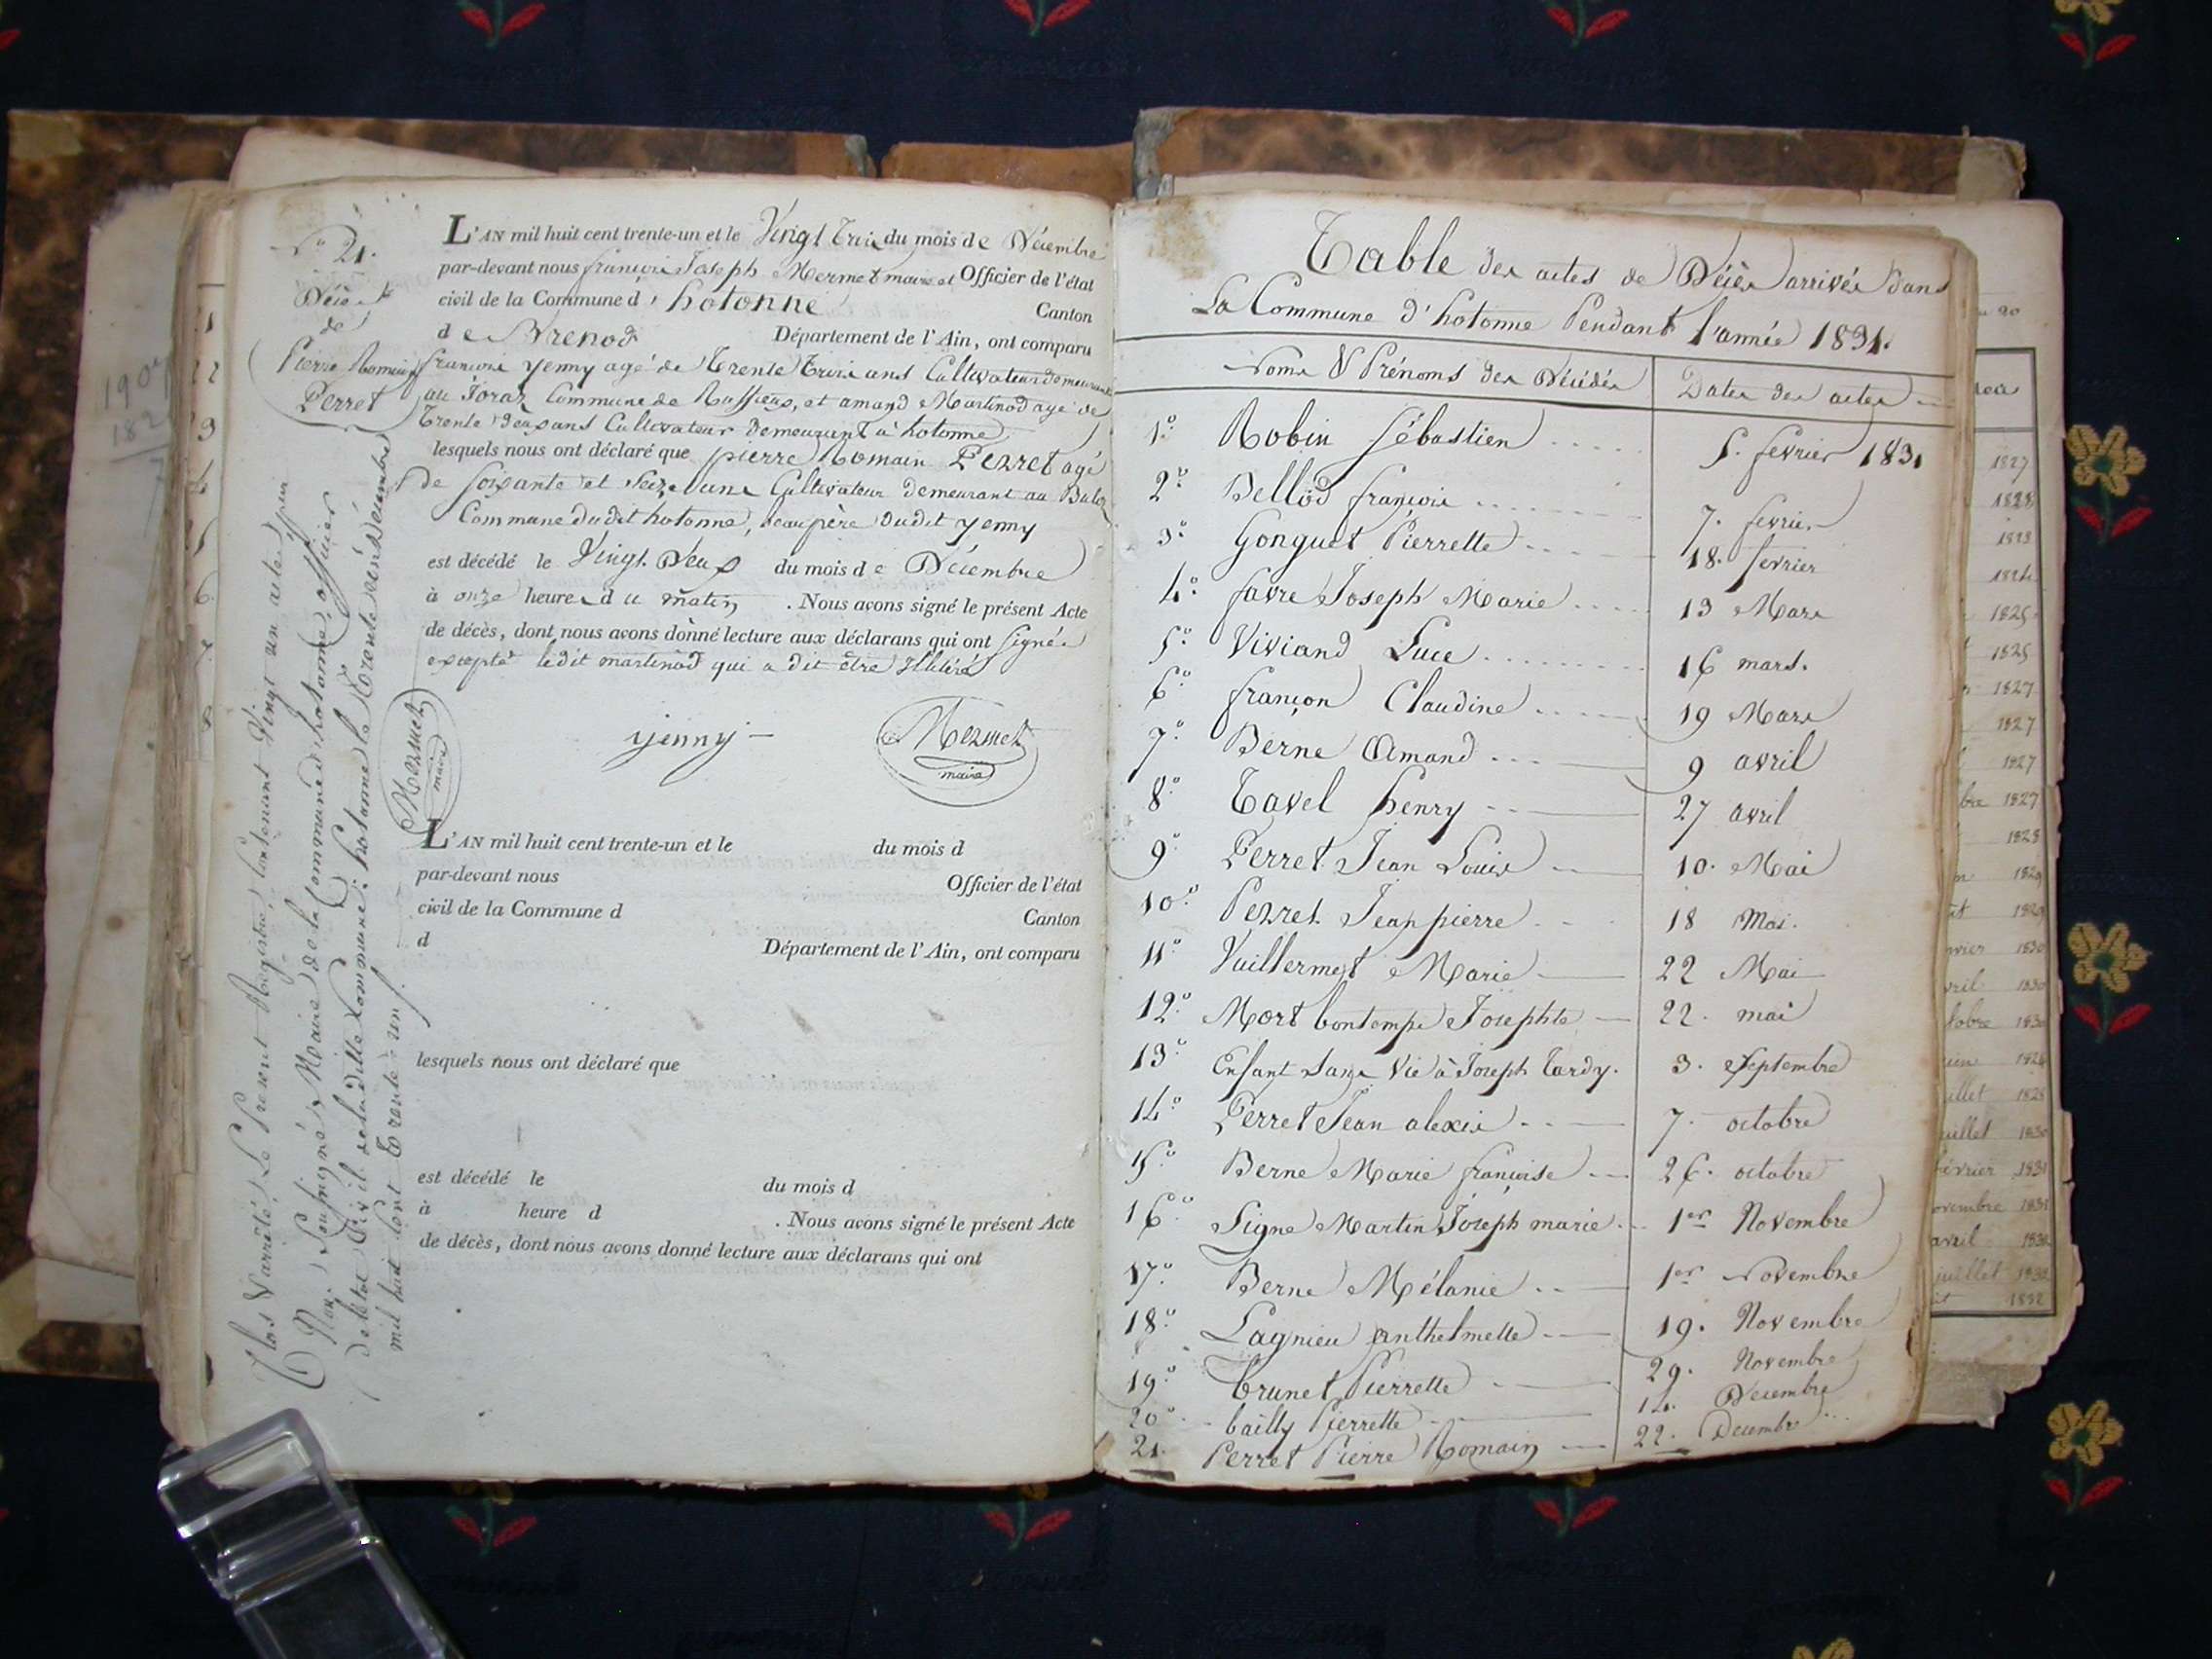 N° 21.
Décès
de
Pierre Romain
Perret
L'AN mil huit cent trente-un et le Vingt Trois du mois de Décembre
par-devant nous françois Joseph Mermet maire et Officier de l'état
civil de la Commune d'hotonne Canton
de Brenod Département de l'Ain, ont comparu
françois yenny agé de Trente Trois ans Cultivateur demeurant
au Joraz Commune de Ruffieux, et amand Martinod agé de
Trente deux ans Cultivateur demeurant à hotonne
lesquels nous ont déclaré que pierre Romain Perret agé
de soixante et seize ans Cultivateur demeurant au
Commune dudit hotonne, beau père dudit yenny
est décédé le Vingt Deux du mois de Décembre
à onze heures du matin . Nous avons signé le présent Acte
de décès, dont nous avons dònné lecture aux déclarans qui ont signés
excepté ledit martinod qui a dit être illitéré
yenny
Mermet
maire
L'AN mil huit cent trente-un et le du mois d
par-devant nous Officier de l'état
civil de la Commune d Canton
d Département de l'Ain, ont comparu
lesquels nous ont déclaré que
est décédé le du mois d
à heure d . Nous avons signé le présent Acte
de décès, dont nous avons donné lecture aux déclarans qui ont
Clos & arrêté Le Present Registre, Contenant Vingt un actes, par
Nous Soussigné, Maire de la Commune d'hotonne, officier
de l'état Civil de la ditte Commune, hotonne le Trente un Décembre
mil huit cent Trente un.
Mermet
maire
Table des actes de Décès arrivés dans
La Commune d'hotonne Pendant l'année 1831.
Noms & Prénoms des Décédés Dates des actes
1° Robin Sébastien 5. fevrier 1831
2° Bellod françois 7. fevrier
3° Gonguet Pierrette 18. fevrier
4° favre Joseph Marie 13 Mars
5° Viviand Luce 16 mars.
6° françon Claudine 19 Mars
7° Berne Amand 9 avril
8° Tavel henry 27 avril
9° Perret Jean Louis 10. Mai
10° Perret Jean pierre 18 Mai.
11° Vuillermet Marie 22 Mai
12° Mort bontemps Josephte 22. mai
13° Enfant Sans Vie à Joseph Tardy. 3. Septembre
14° Perret Jean alexis 7. octobre
15° Berne Marie françoise 26. octobre
16° Signe Martin Joseph marie 1er Novembre
17° Berne Mélanie 1er Novembre
18° Lagnieu anthelmette 19. Novembre
19° brunet Pierrette 29. Novembre
20° bailly Pierrette 14. Décembre
21. Perret Pierre Romain 22. Decembre